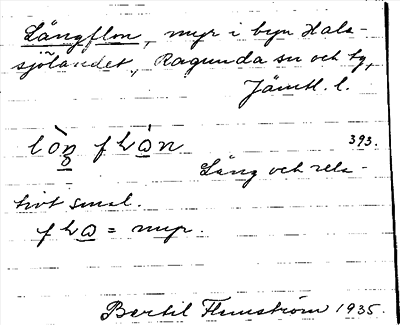 Långflon, myr i byn Hals-
sjölandet, Ragunda sn och tg,
Jämtl. l.
393.
Lång och rela-
tivt smal.
= myr.
Bertil Flemström 1935.